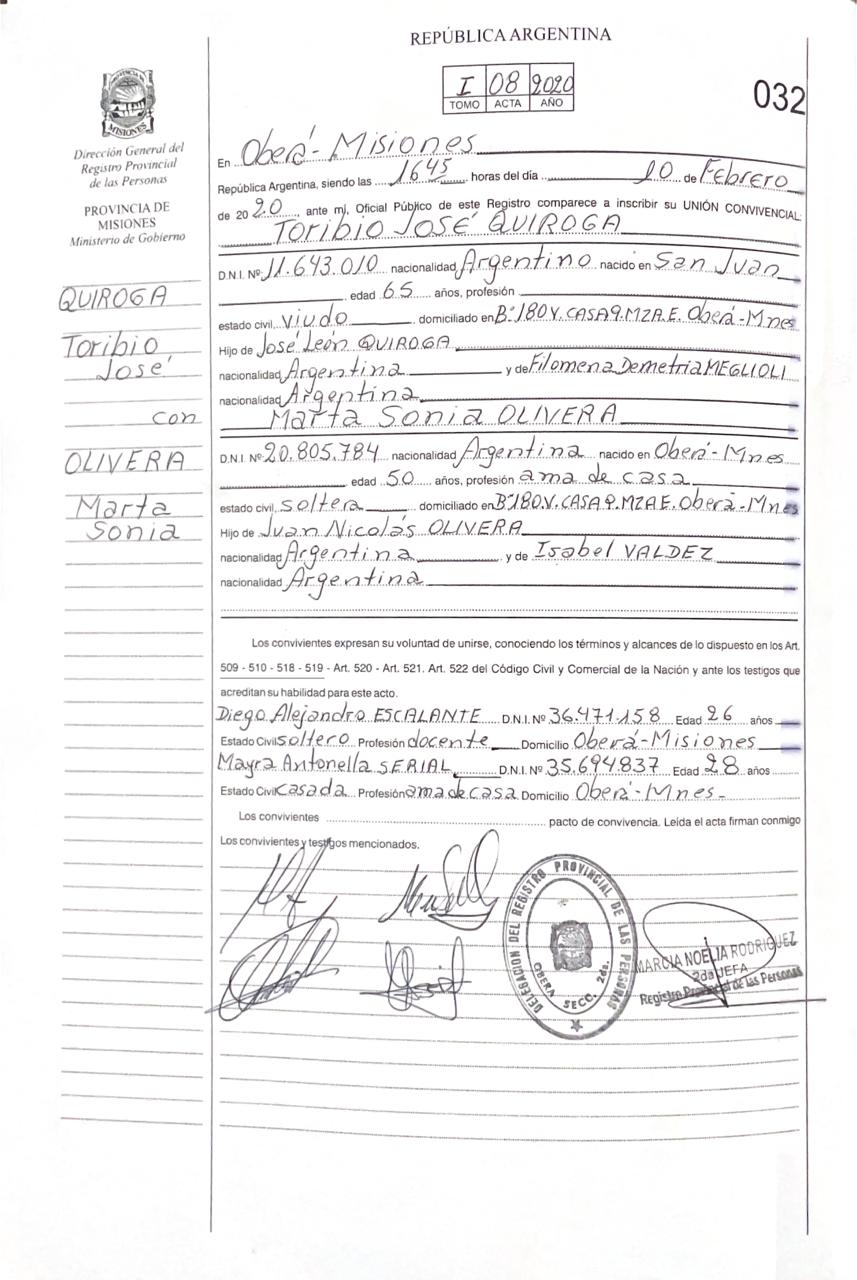 REPÚBLICA ARGENTINA
I 08 2020
TOMO ACTA AÑO
032
PROVINCIA DE MISIONES
Dirección General del
Registro Provincial
de las Personas
PROVINCIA DE
MISIONES
Ministerio de Gobierno
QUIROGA
Toribio
José
con
OLIVERA
Marta
Sonia
En Oberá - Misiones
República Argentina, siendo las 1645 horas del día 10 de Febrero
de 2020, ante mj, Oficial Público de este Registro comparece a inscribir su UNIÓN CONVIVENCIAL:
Toribio José QUIROGA
D.N.I. Nº 11.643.010 nacionalidad Argentino nacido en San Juan
edad 65 años, profesión
estado civil, viudo domiciliado en Bº 180 V. CASA 9. MZA E. Oberá - Mnes
Hijo de José León QUIROGA
nacionalidad Argentina y de Filomena Demetria MEGLIOLI
nacionalidad Argentina
Marta Sonia OLIVERA
D.N.I. Nº 20.805.784 nacionalidad Argentina nacido en Oberá - Mnes
edad 50 años, profesión ama de casa
estado civil, soltera domiciliado en Bº 180 V. CASA 9. MZA E. Oberá - Mnes
Hijo de Juan Nicolás OLIVERA
nacionalidad Argentina y de Isabel VALDEZ
nacionalidad Argentina
Los convivientes expresan su voluntad de unirse, conociendo los términos y alcances de lo dispuesto en los Art.
509 - 510 - 518 - 519 - Art. 520 - Art. 521. Art. 522 del Código Civil y Comercial de la Nación y ante los testigos que
acreditan su habilidad para este acto.
Diego Alejandro ESCALANTE D.N.I. Nº 36.471.158 Edad 26 años
Estado Civil soltero Profesión docente Domicilio Oberá - Misiones
Mayra Antonella SERIAL D.N.I. Nº 35.694837 Edad 28 años
Estado Civil casada Profesión ama de casa Domicilio Oberá - Mnes -
Los convivientes pacto de convivencia. Leída el acta firman conmigo
Los convivientes y testigos mencionados.
DELEGACION DEL REGISTRO PROVINCIAL DE LAS PERSONAS
OBERA SECC. 2da.
MARCIA NOELIA RODRIGUEZ
2da JEFA
Registro Provincial de las Personas